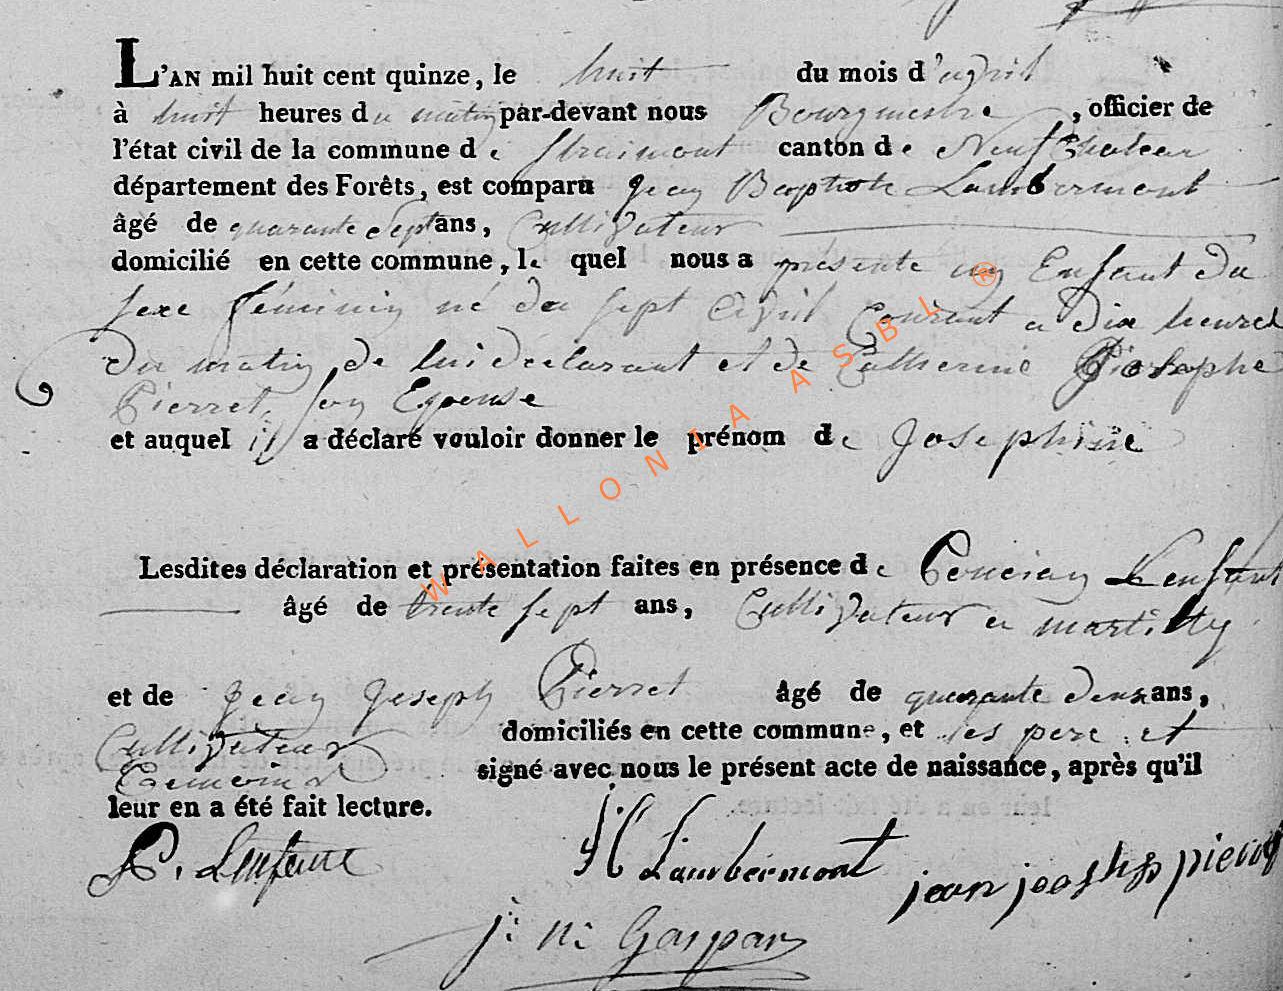 L'AN mil huit cent quinze, le huit du mois d'avril
à huit heures du matin par-devant nous Bourgmestre, officier de
l'état civil de la commune de Straimont canton de Neufchateau
département des Forêts, est comparu Jean Baptiste Lambermont
âgé de quarante Sept ans, Cultivateur
domicilié en cette commune, le quel nous a présenté un Enfant du
sexe féminin né du sept avril Courant a dix heures
du matin de lui déclarant et de Catherine Josephe
Pierret, son Epouse
et auquel il a déclaré vouloir donner le prénom de Josephine
Lesdites déclaration et présentation faites en présence de Poncian Lenfant
âgé de trente sept ans, Cultivateur a martilly
et de Jean Joseph Pierret âgé de quarante deux ans,
Cultivateur domiciliés en cette commune, et les pere et
Temoins signé avec nous le présent acte de naissance, après qu'il
leur en a été fait lecture.
P. Lenfant
j. Lambermont
jean joeshep pierret
j: n: Gaspar
WALLONIA ASBL ®